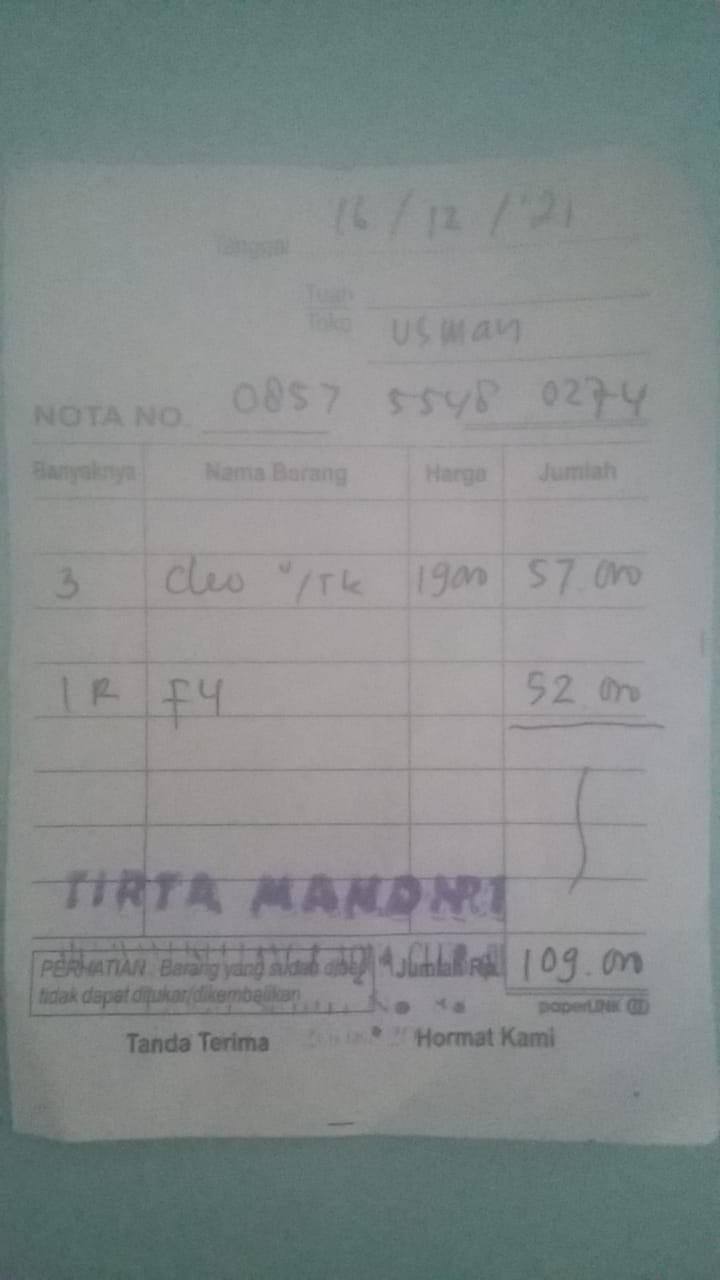 Tanggal 16 / 12 / '21
Tuan
Toko usman
NOTA NO. 0857 5548 0274
Banyaknya Nama Barang Harga Jumlah
3 cleo /Tk 19000 57.000
1 R F4 52.000
TIRTA MANDIRI
PERHATIAN : Barang yang sudah dibeli Jumlah Rp. 109.000
tidak dapat ditukar/dikembalikan
paperLINK
Tanda Terima Hormat Kami